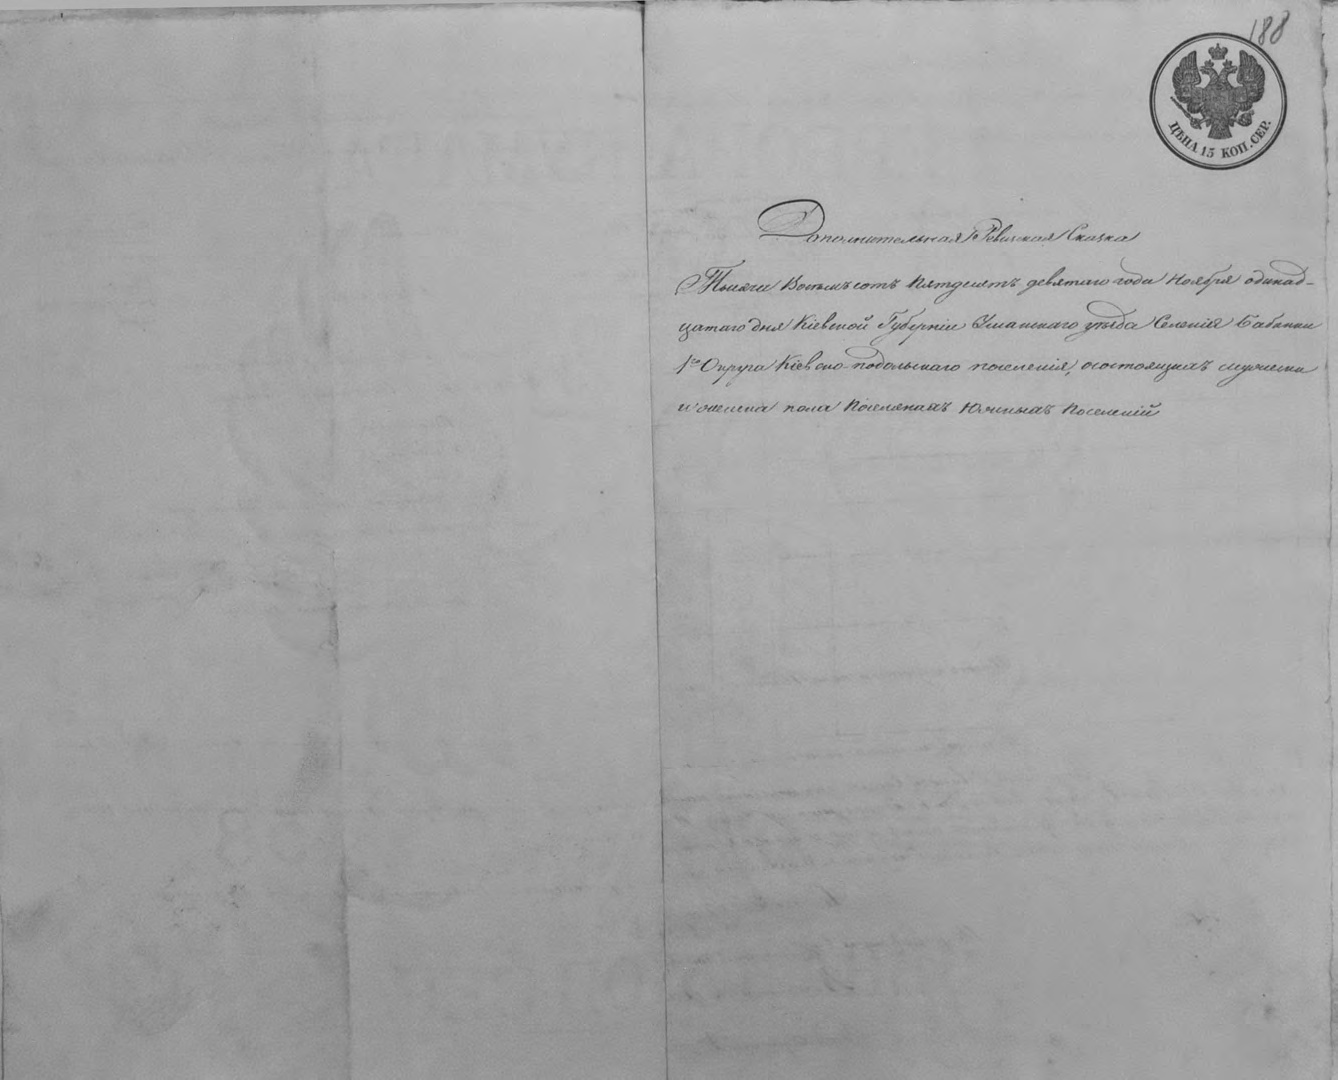 188
ЦѢНА 15 КОП. СЕР.
Дополнительная Ревизская Сказка
Тысяча Восемьсотъ Пятдесятъ девятаго года Ноября одинад-
цатаго дня Кіевской Губерніи Уманскаго уѣзда Селенія Бабанки
1го Округа Кіевско-Подольскаго поселенія, о состоящихъ мужеска
и женска пола Поселянахъ Южныхъ Поселеній